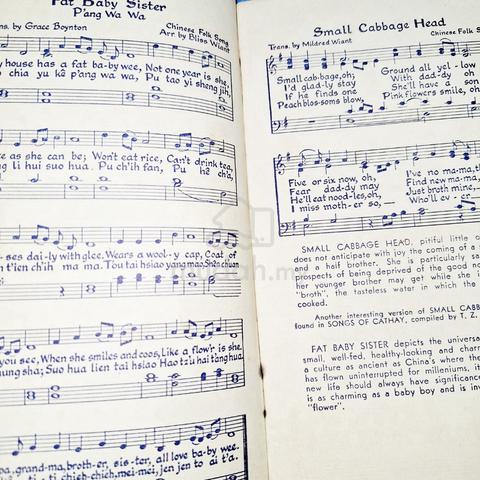 Fat Baby Sister
P'ang Wa Wa
Trans. by Grace Boynton
Chinese Folk Song
Arr by Bliss Wiant
house has a fat ba-by wee, Not one year is she,
chia yu kê p'ang wa wa, Pu tao yi sheng jih,
as she can be; Won't eat rice, Can't drink tea,
li hui suo hua. Pu ch'ih fan, Pu hê ch'a,
dai-ly with glee. Wears a wool-y cap, Coat of
t'ien ch'ih ma ma. Tou tai hsiao yang mao, Shen chuan
you see, When she smiles and coos, Like a flow'r is she.
Suo hua lien tai hsiao Hao tz'u hai t'ang hua.
grand-ma, broth-er, sis-ter, all love ba-by wee.
chieh-chieh, mei-mei, jen jen to ai t'a.
Small Cabbage Head
Trans. by Mildred Wiant
Chinese Folk
Small cab-bage, oh; Ground all yel-low
I'd glad-ly stay With dad-dy oh
If he finds one She'll have a son
Peach blos-soms blow, Pink flowers smile, oh,
Five or six now, oh, I've no ma-ma,
Fear dad-dy may Find new ma-ma,
He'll eat nood-les, oh, Just broth mine,
I miss moth-er so, Who'll ev-er
SMALL CABBAGE HEAD, pitiful little
does not anticipate with joy the coming of a
and a half brother. She is particularly
prospects of being deprived of the good
her younger brother may get while she
"broth", the tasteless water in which the
cooked.
Another interesting version of SMALL
found in SONGS OF CATHAY, compiled by T. Z.
FAT BABY SISTER depicts the
small, well-fed, healthy-looking and
a culture as ancient as China's where the
has flown uninterrupted for milleniums,
new life should always have
is as charming as a baby boy and is
"flower".